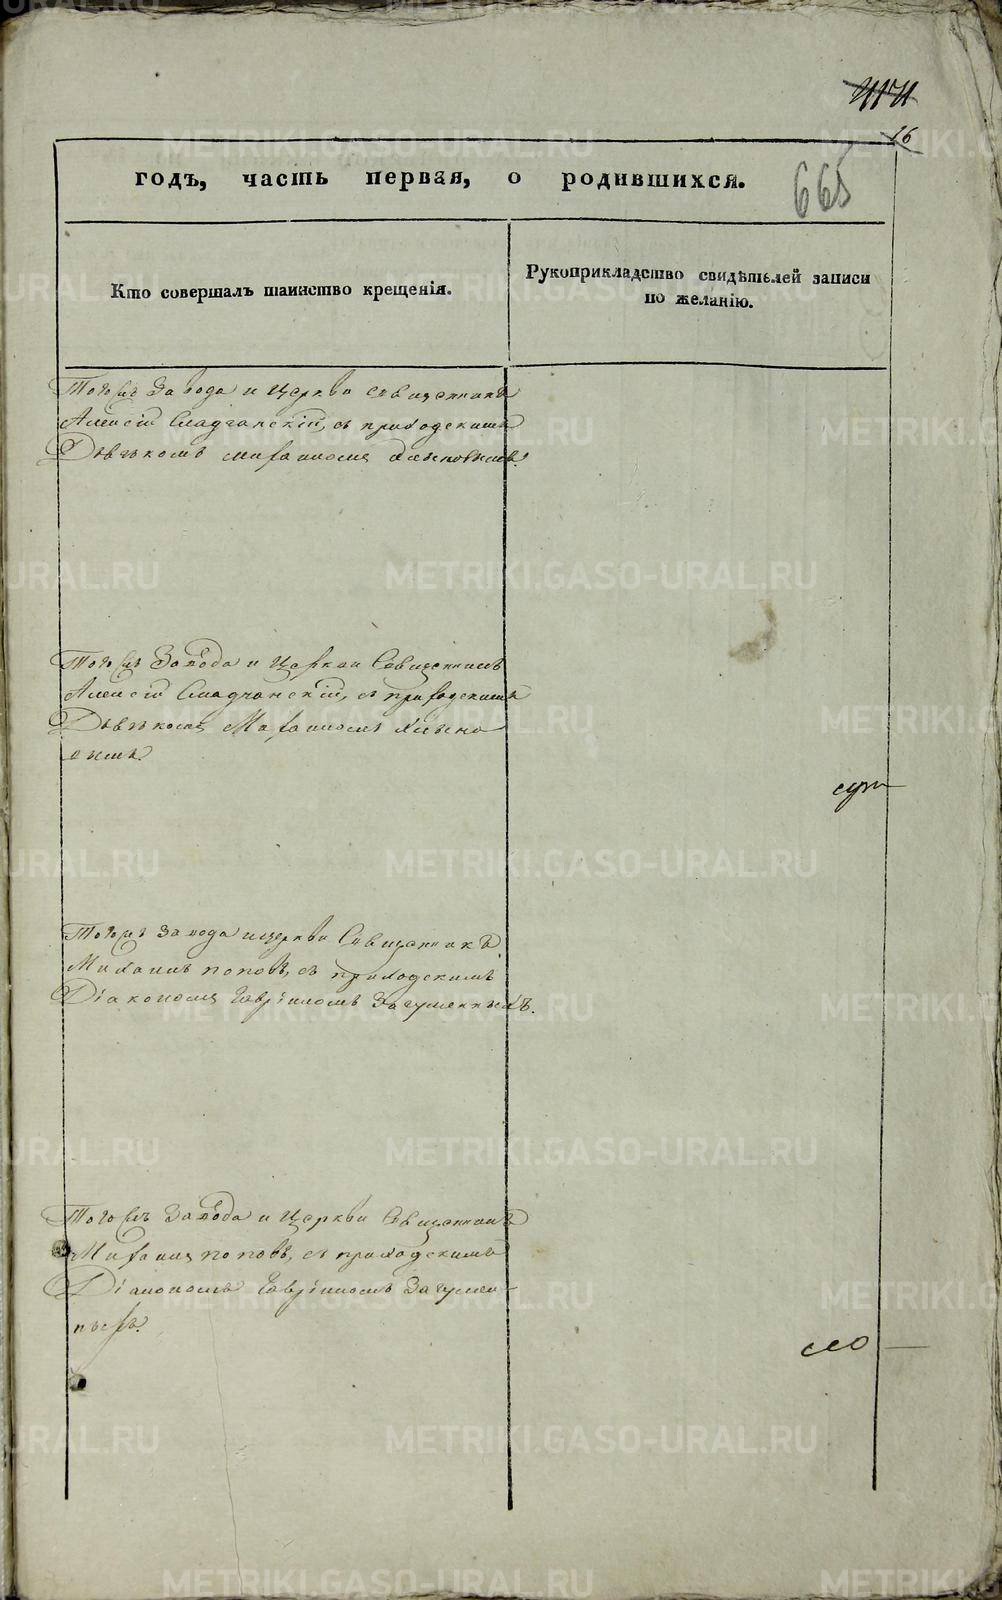 16
665
годъ, часть первая, о родившихся.
Кто совершалъ таинство крещенія.
Рукоприкладство свидѣтелей записи
по желанію.
Тогожъ Завода и Церкви Священникъ
Алексій Сладчанскій, съ приходскимъ
Дьячкомъ Михаиломъ
Тогожъ Завода и Церкви Священникъ
Алексій Сладчанскій, съ приходскимъ
Дьячкомъ Михаиломъ
Тогожъ Завода и церкви Священникъ
Михаилъ Поповъ, съ приходскимъ
Діакономъ Гавріиломъ Загуменныхъ.
Тогожъ Завода и Церкви Священникъ
Михаилъ Поповъ, съ приходскимъ
Діакономъ Гавріиломъ Загумен-
ныхъ.
METRIKI.GASO-URAL.RU